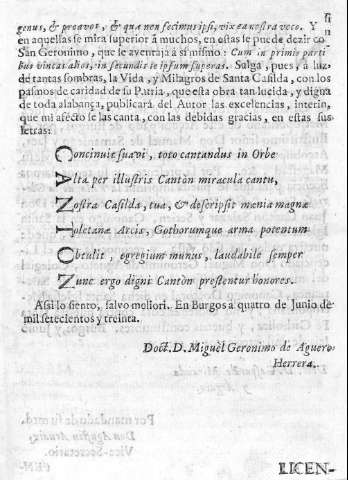 genus, & proavos, & quæ non fecimus ipsi, vix ea nostra voco. Y si
en aquellas se mira superior à muchos, en estas le puede dezir co
San Geronimo, que se aventaja à si mismo: Cum in primis parti
bus vincas alios, in secundis te ipsum superas. Salga, pues, à luz
de tantas sombras, la Vida, y Milagros de Santa Casilda, con los
pasmos de caridad de su Patria, que esta obra tan lucida, y digna
de toda alabança, publicarà del Autor las excelencias, interin,
que mi afecto se las canta, con las debidas gracias, en estas sus
letras:
Concinuit suavi, toto cantandus in Orbe
Alta per illustris Cantòn miracula cantu,
Nostra Casilda, tua, & descripsit mœnia magnæ
Toletanæ Arcis, Gothorumque arma potentum
Obtulit, egregium munus, laudabile semper
Nunc ergo digni Cantòn prestentur honores.
Assi lo siento, salvo meliori. En Burgos a quatro de Junio de
mil setecientos y treinta.
Doct. D. Miguèl Geronimo de Aguero
Herrera.
LICEN-